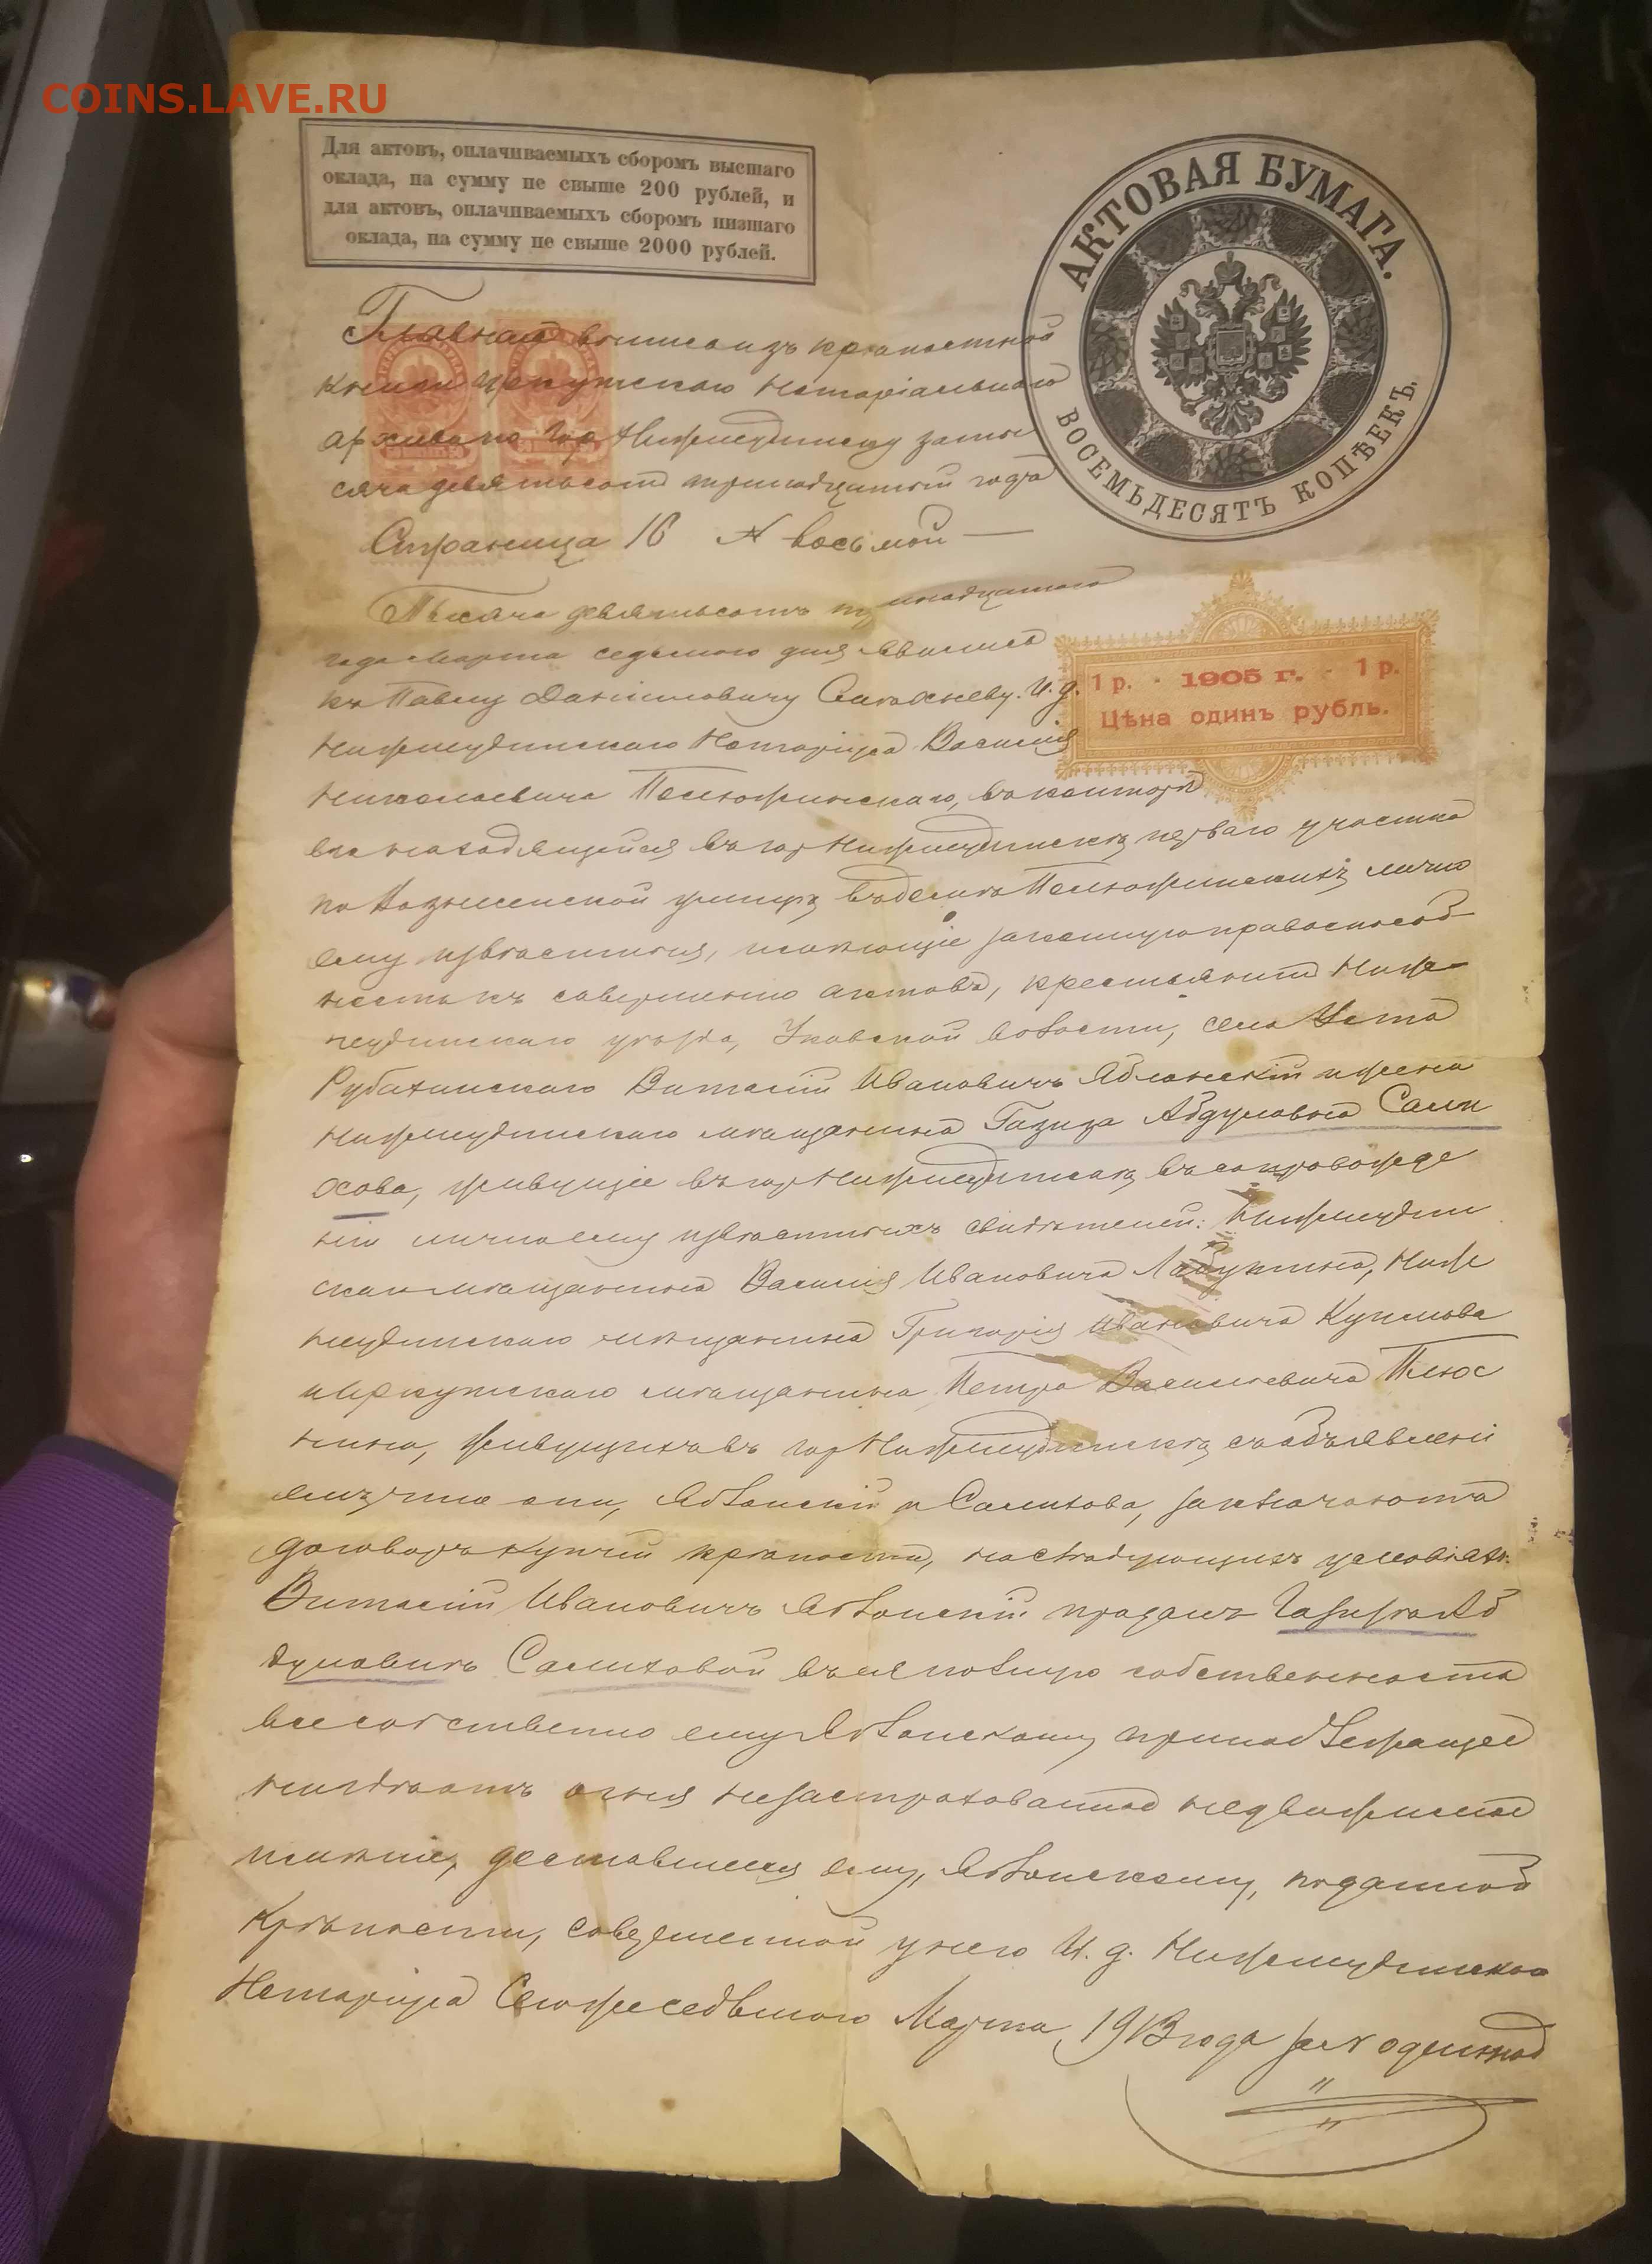 COINS.LAVE.RU
Для актовъ, оплачиваемыхъ сборомъ высшаго
оклада, на сумму не свыше 200 рублей, и
для актовъ, оплачиваемыхъ сборомъ низшаго
оклада, на сумму не свыше 2000 рублей.
АКТОВАЯ БУМАГА.
ВОСЕМЬДЕСЯТЪ КОПѢЕКЪ.
Главная выпись изъ крѣпостной
книги Иркутскаго Нотаріальнаго
архива по гор Нижнеудинску за ты
сяча девятьсотъ тринадцатый годъ
Страница 16 № восьмой —
Тысяча девятьсотъ тринадцатаго
года Марта седьмого дня явились
къ Павлу Даніиловичу И. д.
1 р. · 1905 г. · 1 р.
Цѣна одинъ рубль.
Нижнеудинскаго Нотаріуса Василія
Николаевича въ конторѣ
его находящейся въ гор Нижнеудинскѣ перваго участка
по Вознесенской улицѣ въ домѣ лично
ему извѣстные, имѣющіе законную правоспособ
ность къ совершенію актовъ, крестьянинъ Ниж-
неудинскаго уѣзда, Уковской волости, села
Виталій Ивановичъ Яблонскій и жена
Нижнеудинскаго мѣщанина Газиза Абдуловна Сали
хова, живущіе въ гор Нижнеудинскѣ, въ сопровожде
ніи лично ему извѣстныхъ свидѣтелей: Нижнеудин
скаго мѣщанина Василія Ивановича Ниж
неудинскаго мѣщанина Григорія Ивановича
и Иркутскаго мѣщанина Петра Васильевича Плюс
нина, живущихъ въ гор Нижнеудинскѣ съ объявлені
емъ что они, Яблонскій и Салихова, заключаютъ
договоръ купчей крѣпости, на слѣдующихъ условіяхъ:
Виталій Ивановичъ Яблонскій продалъ Газизѣ Аб
дуловнѣ Салиховой въ ея полную собственность
все собственно ему Яблонскому принадлежащее
нигдѣ отъ огня незастрахованное недвижимое
имѣніе, доставшееся ему, Яблонскому, по данной
Крѣпости, совершенной у него И. д. Нижнеудинскаго
Нотаріуса седьмого Марта 1913 года за №